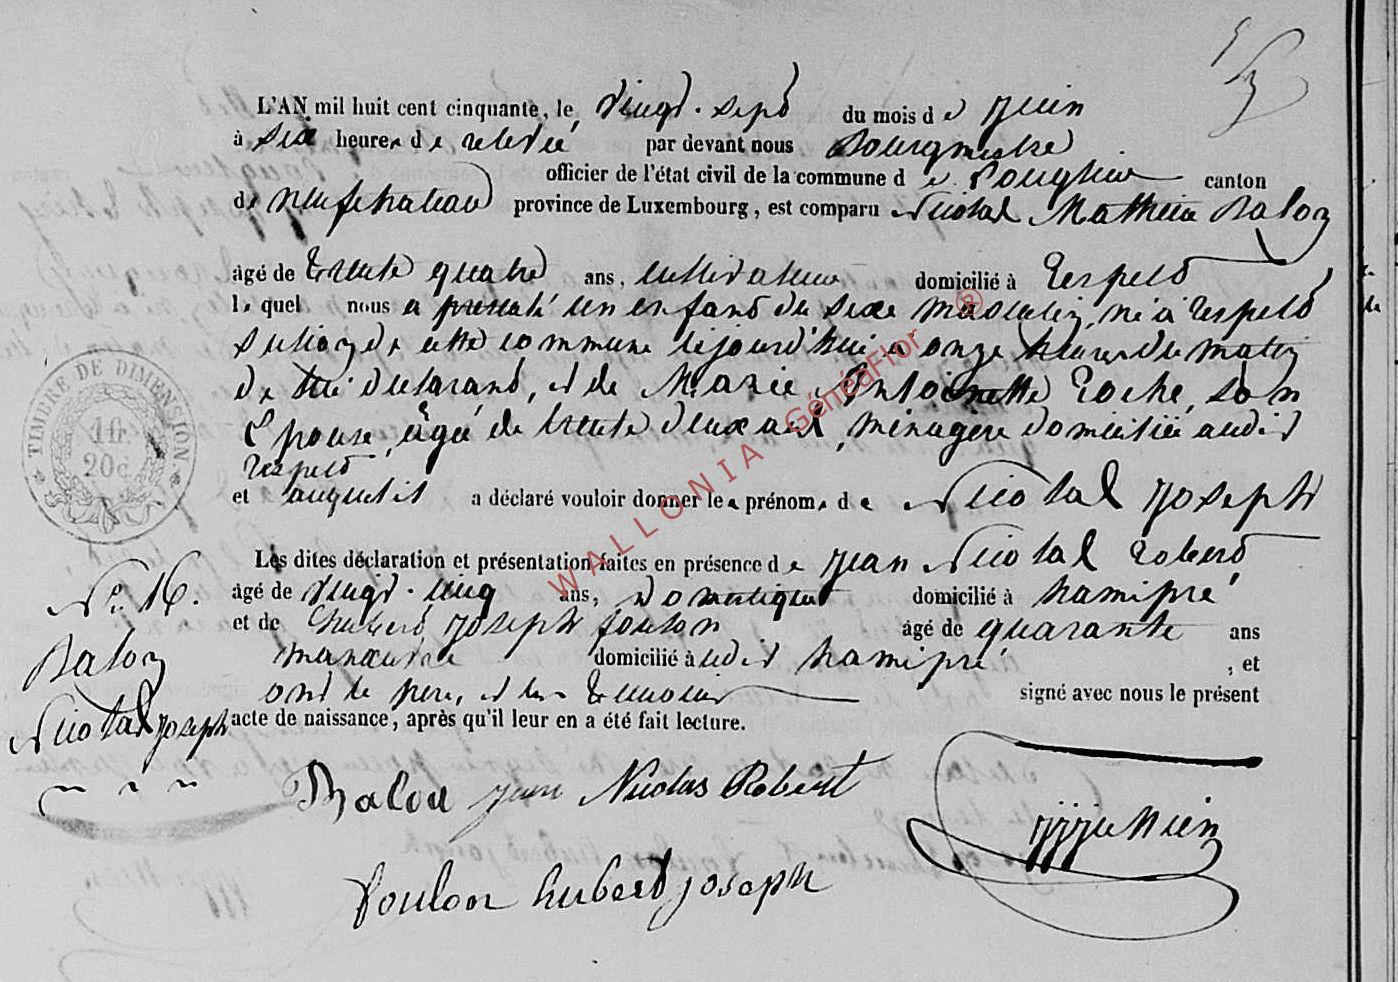 L'AN mil huit cent cinquante, le vingt-sept du mois de juin
à six heures de relevée par devant nous Bourgmestre
officier de l'état civil de la commune de Longlier canton
de neufchateau province de Luxembourg, est comparu Nicolas Mathieu Balon
âgé de trente quatre ans, cultivateur domicilié à Respelt
lequel nous a presenté un enfant du sexe masculin, né à respelt
section de cette commune cejourd'hui a onze heures du matin
de lui declarant, et de Marie Antoinette Roche, son
Epouse, agée de trente deux ans, menagère domiciliée audit
respelt
et auquel il a déclaré vouloir donner les prénoms de Nicolas Joseph
Les dites déclaration et présentation faites en présence de jean Nicolas Robert
âgé de vingt-cinq ans, domestique domicilié à hamipré
et de hubert joseph foulon âgé de quarante ans
manœuvre domicilié audit hamipré, et
ont le père, et les temoins signé avec nous le présent
acte de naissance, après qu'il leur en a été fait lecture.
TIMBRE DE DIMENSION
1 fr.
20c.
N° 16.
Balon
Nicolas joseph
Balon jean Nicolas Robert
foulon hubert joseph
WALLONIA GénéaFlor ®